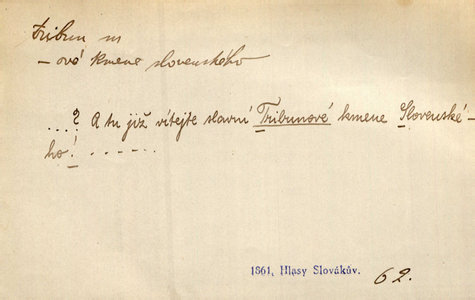 Tribun m
– ové kmene slovenského
...? A tu již vítejte slavní Tribunové kmene Slovenské-
ho! ......
1861, Hlasy Slovákův.
62.